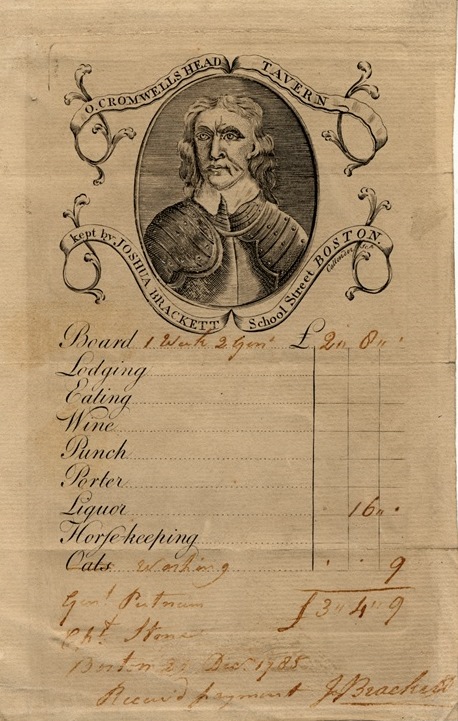 O. CROMWELLS HEAD TAVERN
kept by JOSHUA BRACKETT School Street BOSTON.
Board 1 Week 2 Gen.s £ 2 " 8 " .
Lodging
Eating
Wine
Punch
Porter
Liquor . 16 " .
Horſe-keeping
Oats Washing . . 9
Gen.l Putnam £3 " 4 " 9
Stone
Boston 29 Dec. 1785
Receiv'd payment J Brackett